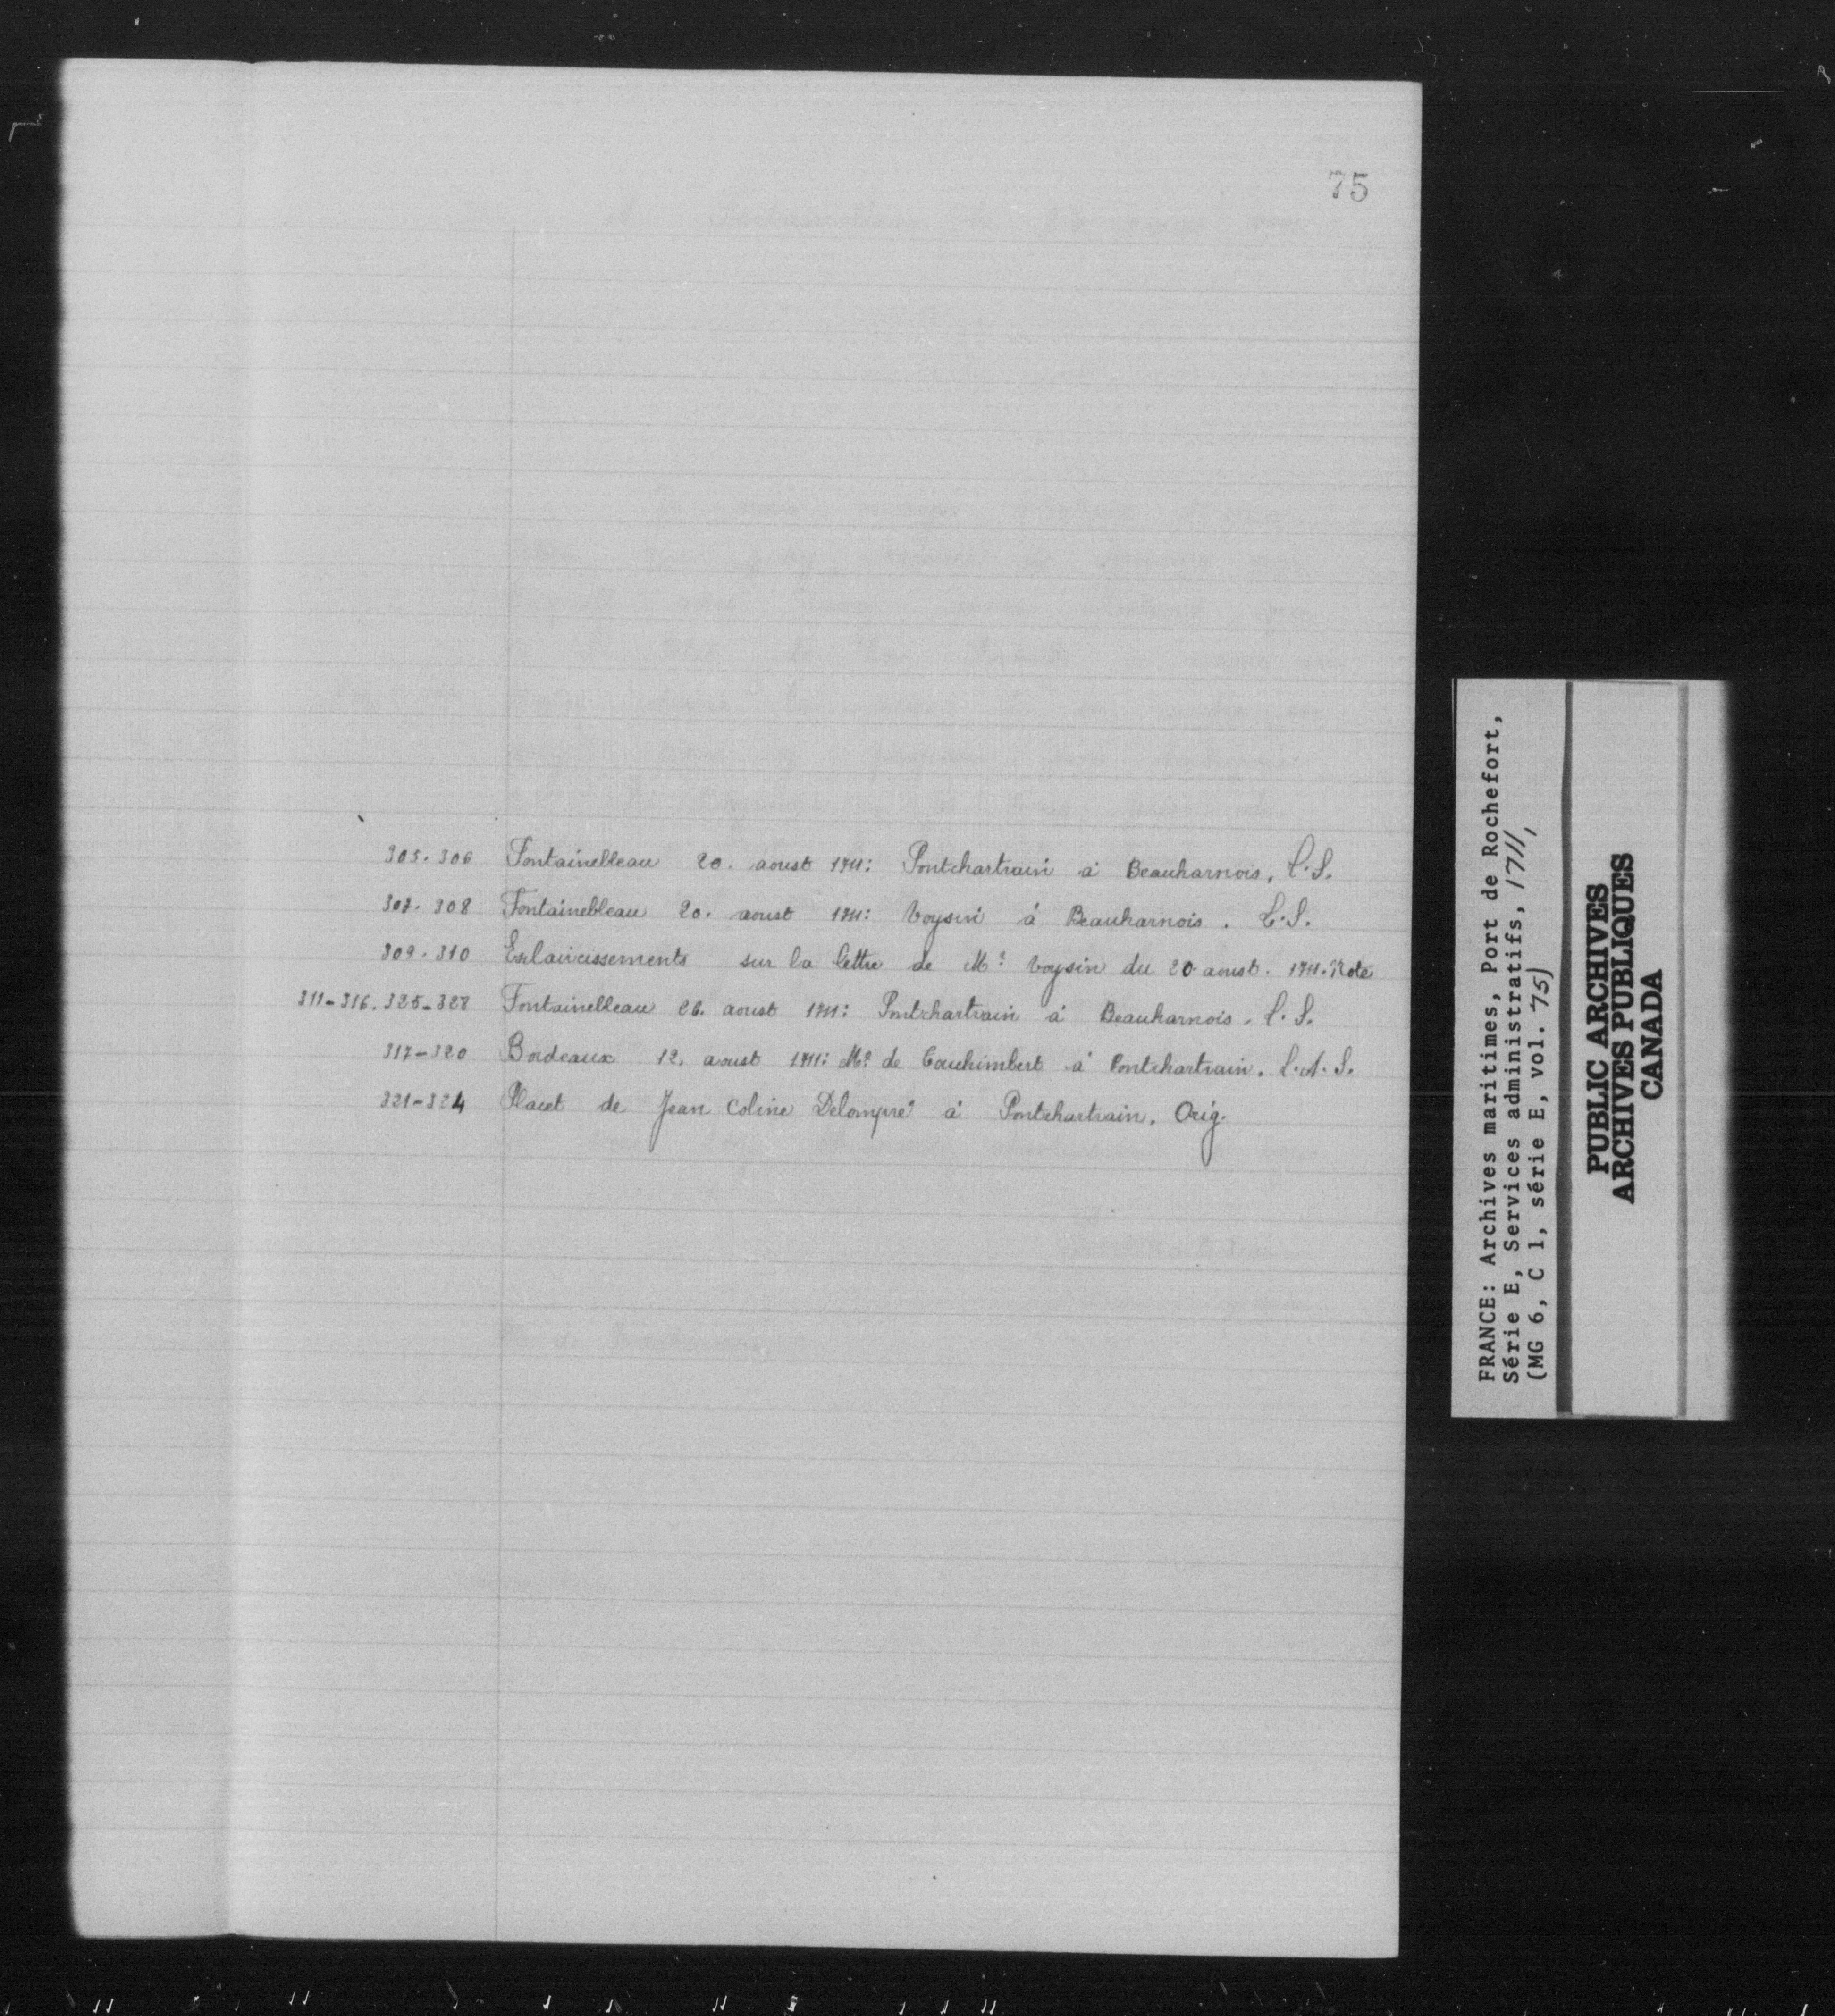 75
305. 306 Fontainebleau 20. aoust 1711: Pontchartrain à Beauharnois, L.S.
307. 308 Fontainebleau 20. aoust 1711: Voysin à Beauharnois. L.S.
309. 310 Esclaircissements sur la lettre de Mr Voysin du 20 aoust. 1711. Note
311-316. 325-328 Fontainebleau 26. aoust 1711: Pontchartrain à Beauharnois. L.S.
317-320 Bordeaux 12. aoust 1711: Mr de à Pontchartrain. L.A.S.
321-324 Placet de Jean Coline Delompré à Pontchartrain. Orig.
FRANCE: Archives maritimes, Port de Rochefort,
Série E, Services administratifs, 1711,
(MG 6, C 1, série E, vol. 75)
PUBLIC ARCHIVES
ARCHIVES PUBLIQUES
CANADA